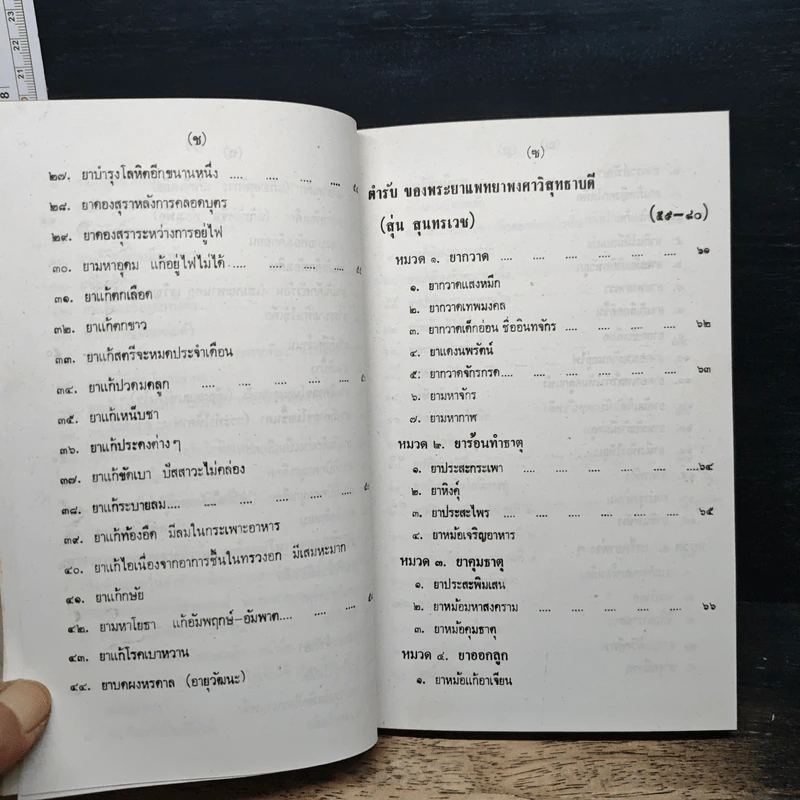 (ช)
๒๗. ยาบำรุงโลหิตอีกขนานหนึ่ง .... .... .... ....
๒๘. ยาดองสุราหลังการคลอดบุตร
๒๙. ยาดองสุราระหว่างการอยู่ไฟ
๓๐. ยามหาอุดม แก้อยู่ไฟไม่ได้ .... .... .... ....
๓๑. ยาแก้ตกเลือด
๓๒. ยาแก้ตกขาว
๓๓. ยาแก้สตรีจะหมดประจำเดือน
๓๔. ยาแก้ปวดมดลูก .... .... .... .... ....
๓๕. ยาแก้เหน็บชา
๓๖. ยาแก้ประดงต่าง ๆ
๓๗. ยาแก้ขัดเบา ปัสสาวะไม่คล่อง
๓๘. ยาแก้ระบายลม.... .... .... .... .... ....
๓๙. ยาแก้ท้องอืด มีลมในกระเพาะอาหาร
๔๐. ยาแก้ไอเนื่องจากอาการชื้นในทรวงอก มีเสมหะมาก
๔๑. ยาแก้กษัย
๔๒. ยามหาโยธา แก้อัมพฤกษ์-อัมพาต.... .... ....
๔๓. ยาแก้โรคเบาหวาน
๔๔. ยาบดผงหรดาล (อายุวัฒนะ)
(ซ)
ตำรับ ของพระยาแพทยาพงศาวิสุทธาบดี
(สุ่น สุนทรเวช) (๕๙-๘๐)
หมวด ๑. ยากวาด .... .... .... .... .... .... ๖๑
๑. ยากวาดแสงหมึก
๒. ยากวาดเทพมงคล
๓. ยากวาดเด็กอ่อน ชื่ออินทจักร .... .... .... .... ๖๒
๔. ยาแดงนพรัตน์
๕. ยากวาดจักรกรด.... .... .... .... .... .... ๖๓
๖. ยามหาจักร
๗. ยามหากาฬ
หมวด ๒. ยาร้อนทำธาตุ
๑. ยาประสะกระเพา .... .... .... .... .... ....๖๔
๒. ยาหิงคุ์
๓. ยาประสะไพร .... .... .... .... .... .... ๖๕
๔. ยาหม้อเจริญอาหาร
หมวด ๓. ยาคุมธาตุ
๑. ยาประสะพิมเสน
๒. ยาหม้อมหาสงคราม .... .... .... .... .... ๖๖
๓. ยาหม้อคุมธาตุ
หมวด ๔. ยาออกลูก
๑. ยาหม้อแก้อาเจียน